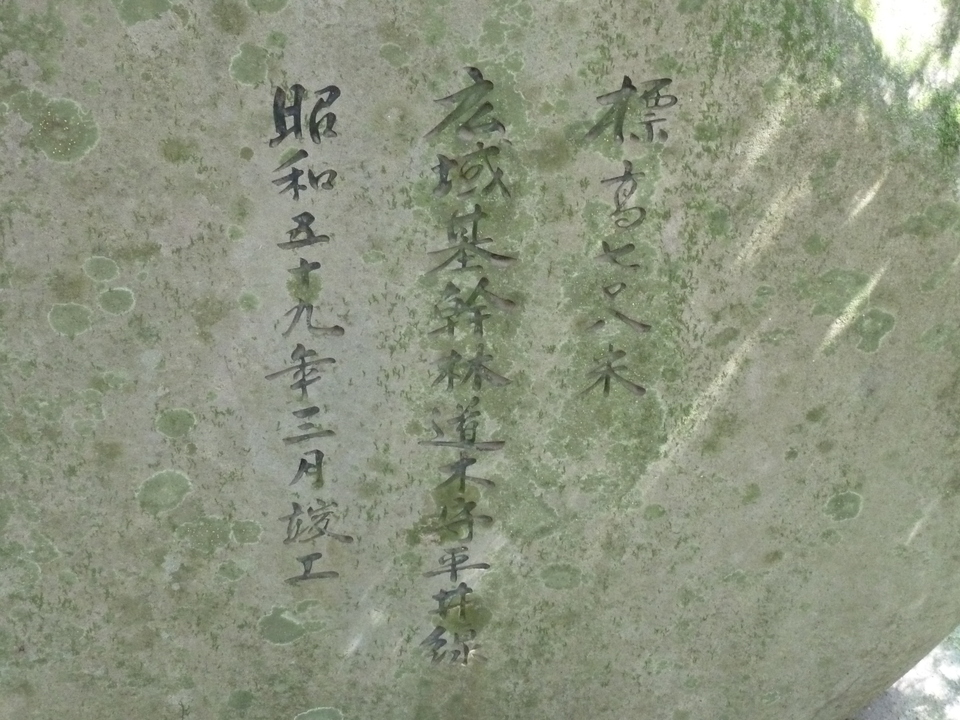 標高七〇八米
広域基幹林道木守平井線
昭和五十九年三月竣工